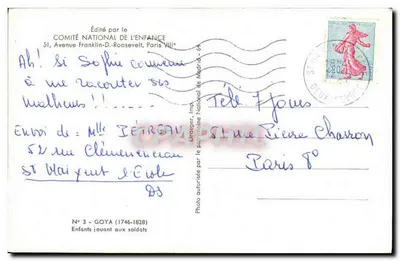 Édité par le
COMITÉ NATIONAL DE L'ENFANCE
51, Avenue Franklin-D.-Roosevelt, Paris VIIIe
Ah! Si Sophie
à me raconter ses
malheurs!! ......
Envoi de : Mlle BÉTREAU
52 rue Clémenceau
St Maixent l'École
N° 3 - GOYA (1746-1828)
Enfants jouant aux soldats
Draeger, Imp.
Photo autorisée par le National de Madrid - 64
Télé 7 Jours
51 rue Pierre Charron
Paris 8°